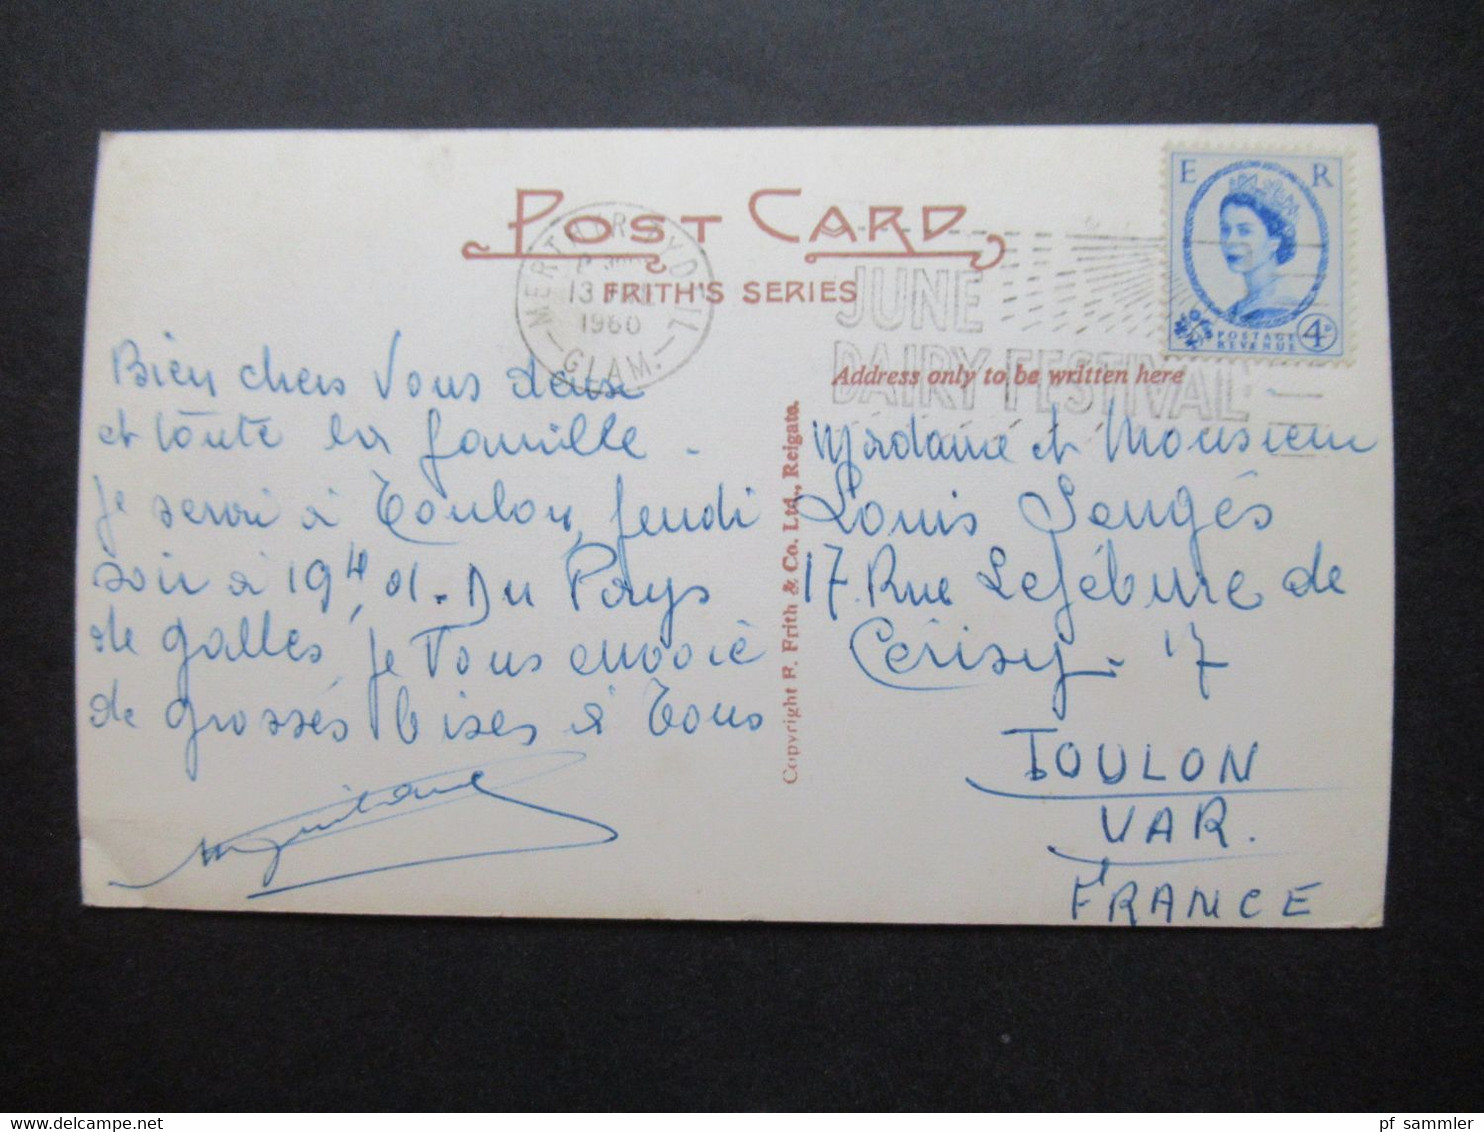 POST CARD
FRITH'S SERIES
MERTHYR TYDFIL
13 JUNE
1960
GLAM.
JUNE
DAIRY FESTIVAL
E R
POSTAGE
REVENUE
4D
Address only to be written here
Bien chers Vous deux
et toute la famille.
Je serai à Toulon, Jeudi
soir à 19H 01. Du Pays
de galles, je Vous envoie
de grosses bises à Tous
Copyright F. Frith & Co. Ltd., Reigate.
Madame et Monsieur
Louis
17 Rue Lefébure de
Cérisy - 17
TOULON
VAR.
FRANCE
pf_sammler